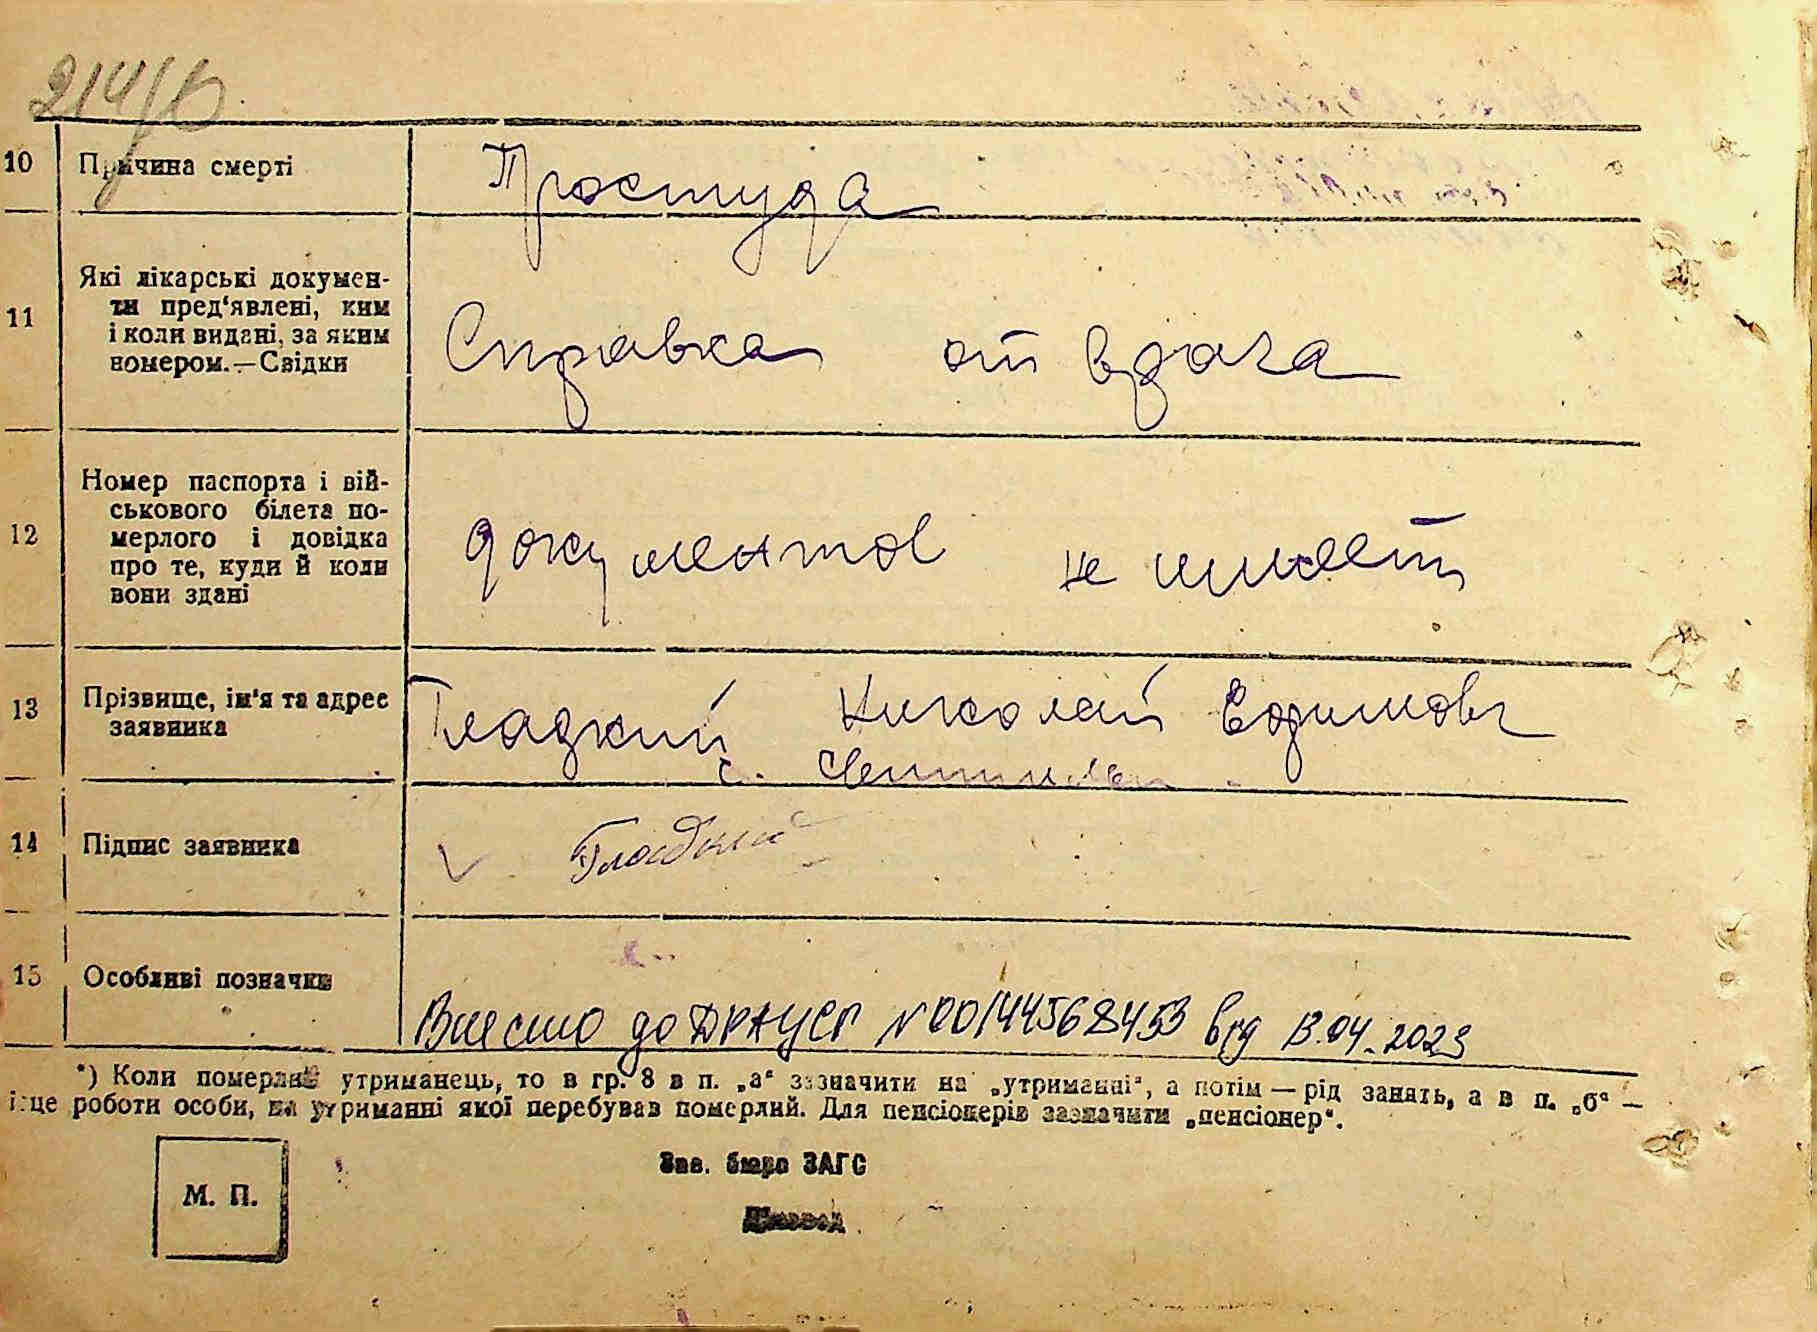 214/б
10 Причина смерті Простуда
11 Які лікарські докумен-
ти пред'явлені, ким
і коли видані, за яким
номером.—Свідки
Справка от врача
12 Номер паспорта і вій-
ськового білета по-
мерлого і довідка
про те, куди й коли
вони здані
документов не имеет
13 Прізвище, ім'я та адрес
заявника
Гладкий Николай Ефимов
с.
14 Підпис заявника Гладкий
15 Особливі позначки
Внесено до ДРАЦСГ №00144568453 від 13.04.2023
*) Коли померлий утриманець, то в гр. 8 в п. „а" зазначити на „утриманні", а потім — рід занять, а в п. „б" —
місце роботи особи, на утриманні якої перебував померлий. Для пенсіонерів зазначити „пенсіонер".
М. П.
Зав. бюро ЗАГС